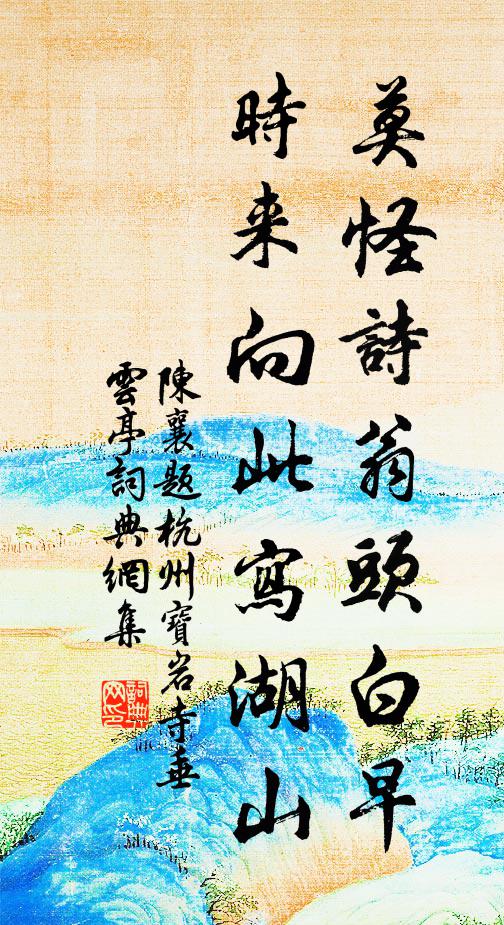 莫怪詩翁頭白早
時来向此寫湖山
陳襄题杭州寶岩寺垂
雲亭詞典網集
詞典網印